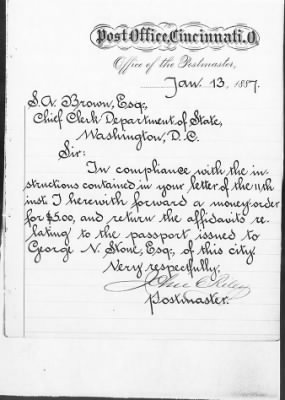 Post Office, Cincinnati, O.
Office of the Postmaster,
Jan. 13, 1887.
S.A. Brown, Esq.,
Chief Clerk Department of State,
Washington, D.C.
Sir:
In compliance with the in-
structions contained in your letter of the 11th
inst. I herewith forward a money-order
for $5.00, and return the affidavits re-
lating to the passport issued to
George N. Stone, Esq., of this city.
Very respectfully,
Postmaster.